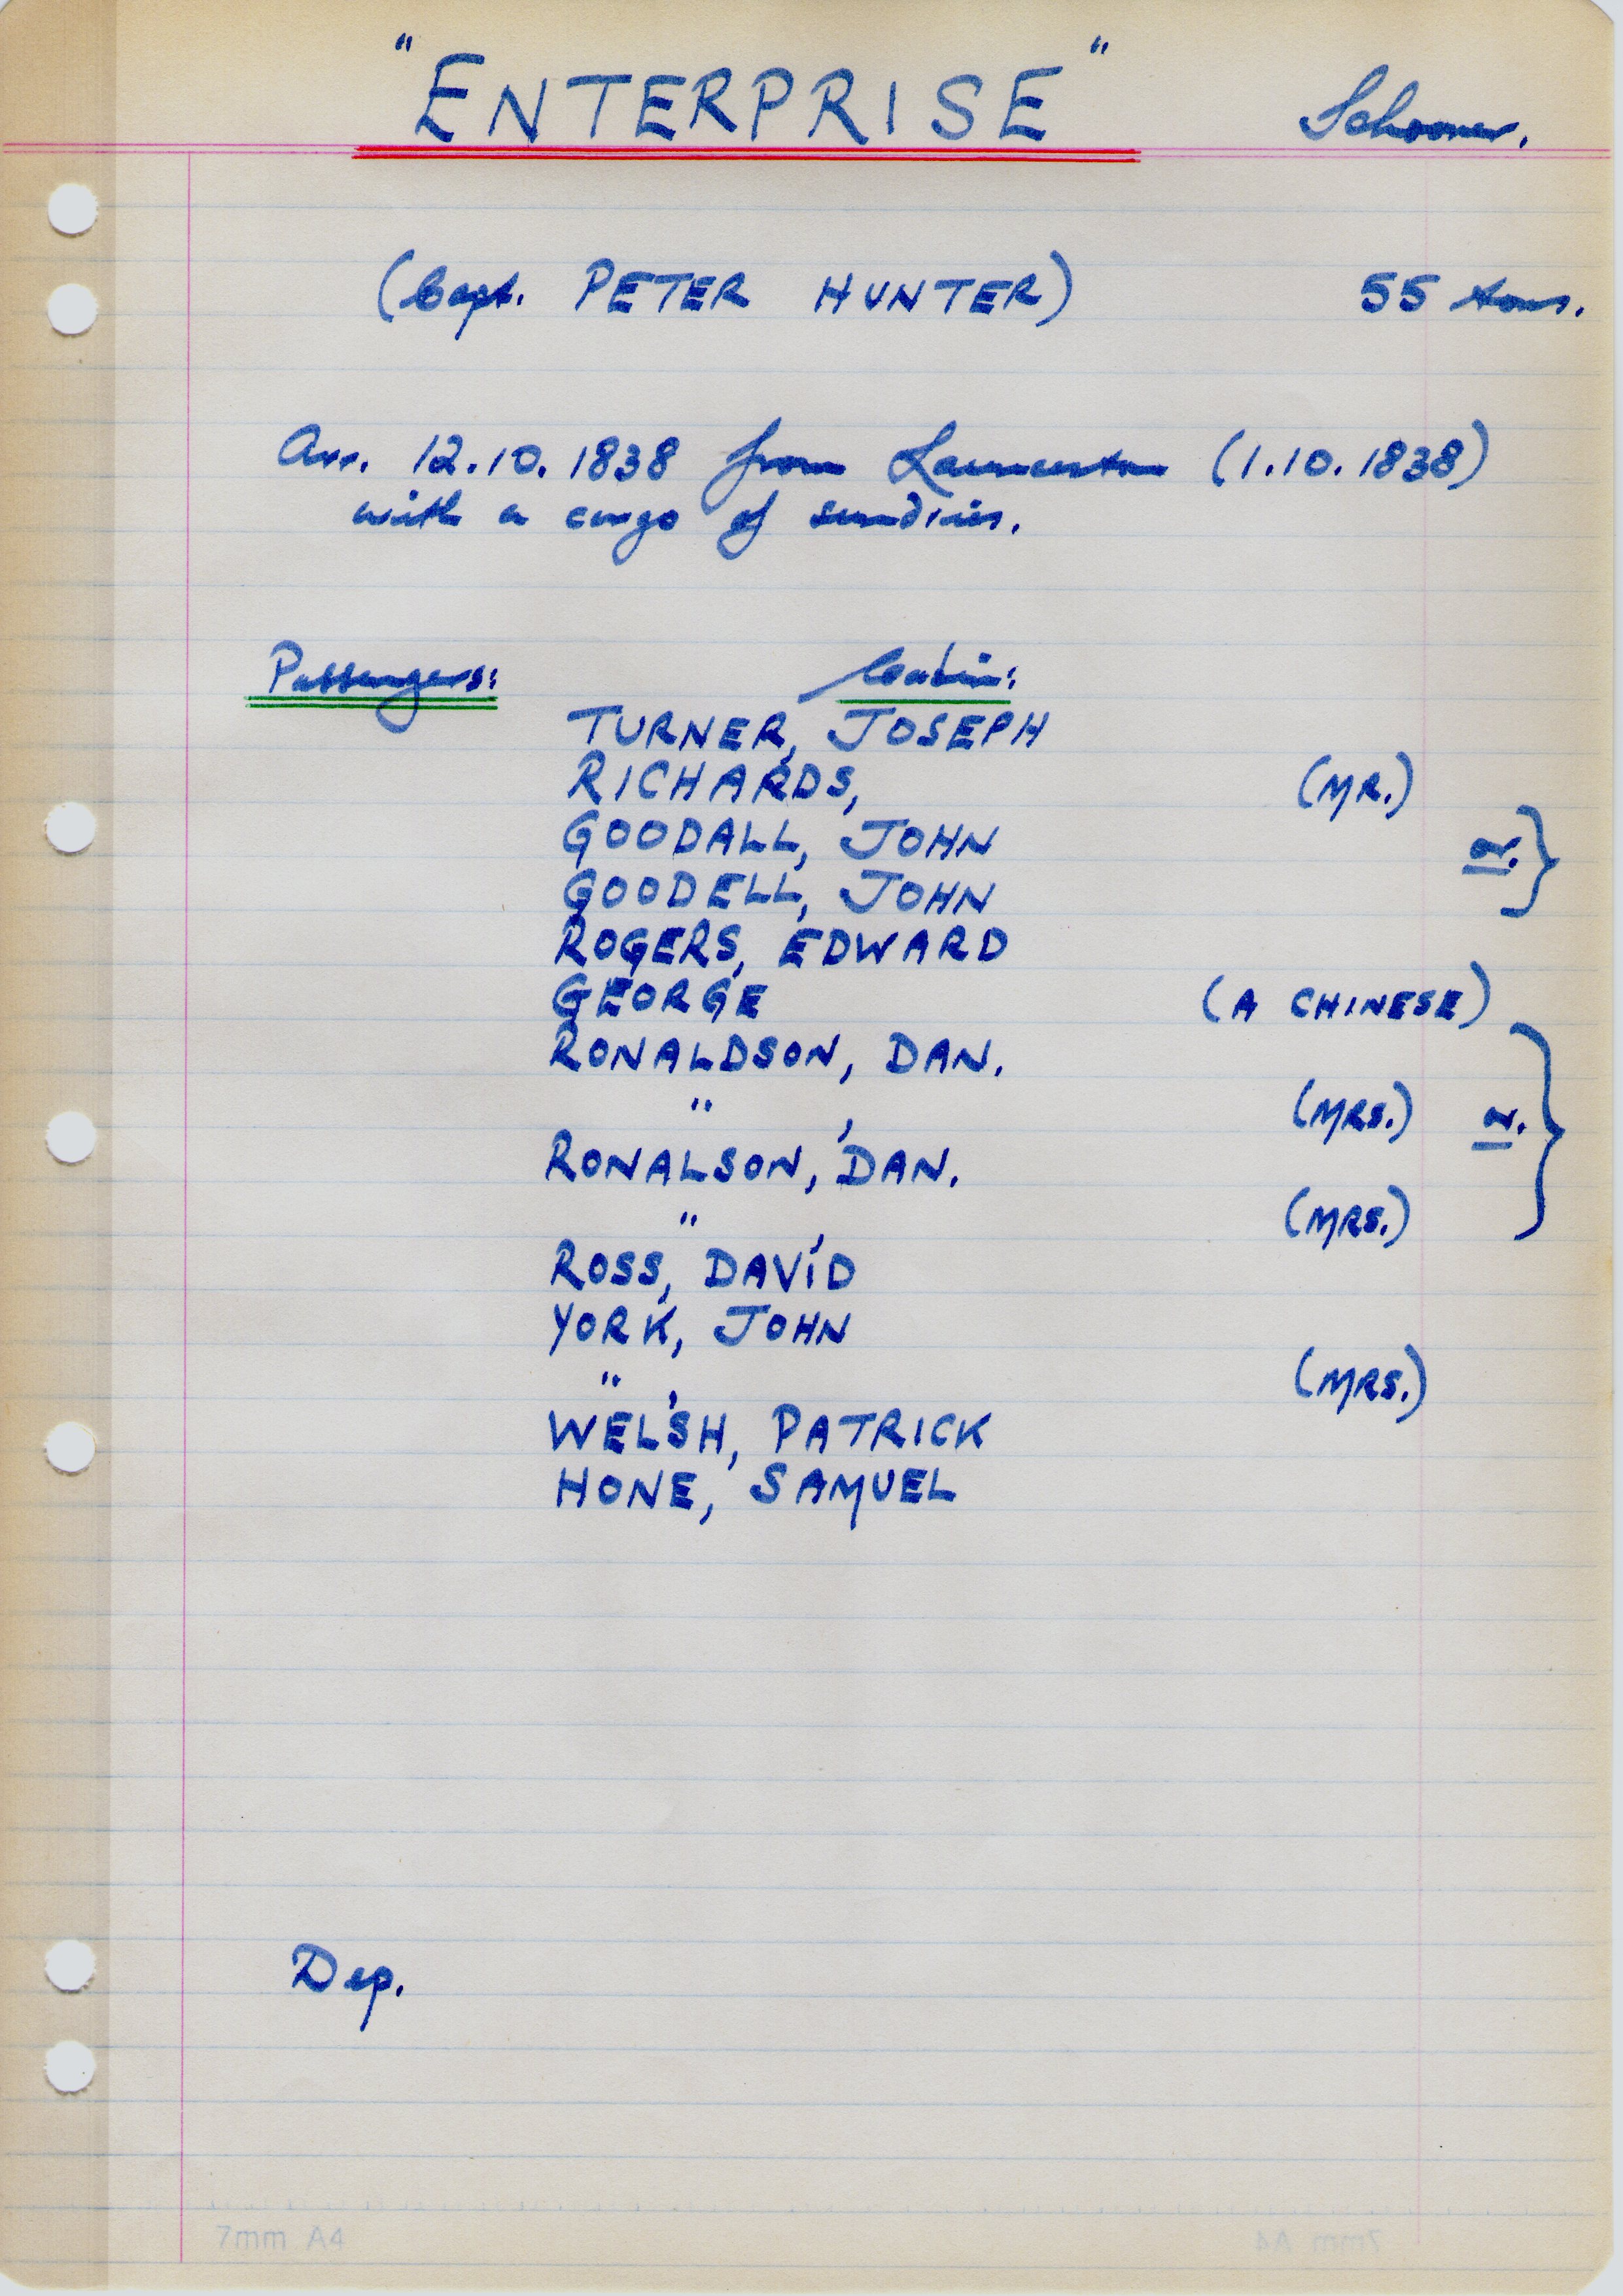 "ENTERPRISE" Schooner.
(Capt. PETER HUNTER) 55 tons.
Arr. 12.10.1838 from Launceston (1.10.1838)
with a cargo of sundries.
Passengers: Cabin:
TURNER, JOSEPH
RICHARDS, (MR.)
GOODALL, JOHN or. }
GOODELL, JOHN
ROGERS, EDWARD
GEORGE (A CHINESE)
RONALDSON, DAN.
" , (MRS.) or. }
RONALSON, DAN.
" , (MRS.)
ROSS, DAVID
YORK, JOHN
" , (MRS.)
WELSH, PATRICK
HONE, SAMUEL
Dep.
7mm A4